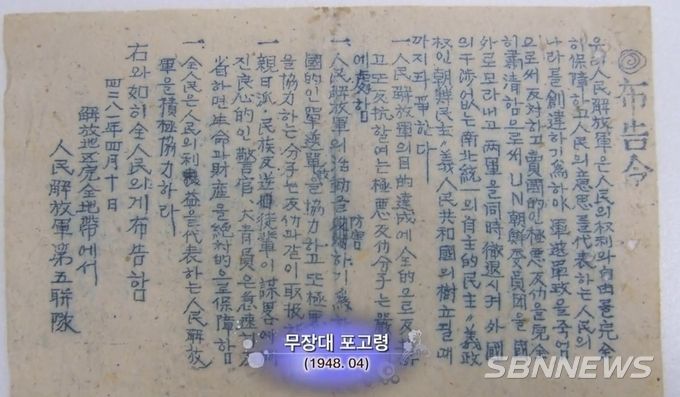 布告令
우리人民解放軍은人民의权利와自由를完全
히保障하고人民의意思를代表하는人民의
나라를創建하기爲하야單選單政을죽엄
으로써反対하고賣國的인極悪反动을完全
히肅清함으로써UN朝鮮委員団을國
外로모라내고両軍을同時撤退시켜外國
의干涉없는南北統一의自主的民主〃義政
权인朝鮮民主〃義人民共和國이樹立될때
까지 한다
一 人民解放軍의目的達成에全的으로反
고또反抗할여는極悪反动分子는嚴
에處함
一 人民解放軍의活動을防害하기爲
國的인單選單을協力하고또極
을協力하는分子는反动과같이取扱
一 親日派·民族反逆徒輩이謀略에
진良心的인警官、大青員은急速
省하면生命과財産을絶対的으로保障함
一 全人民은人民의利益을代表하는人民解放
軍을積極協力하라
右와如히全人民의게布告함
四三八一年四月十日
解放地区完全地帶에서
人民解放軍第五聯隊
무장대 포고령
(1948. 04)
SBNNEWS